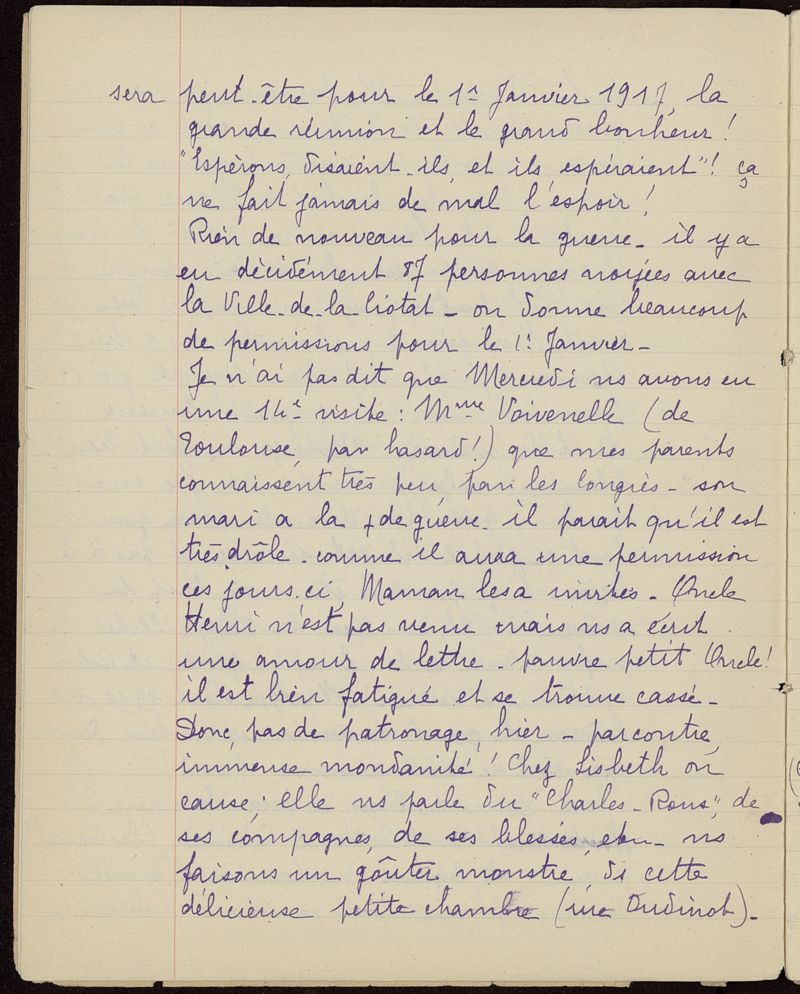 sera peut-être pour le 1er Janvier 1917, la
grande réunion et le grand bonheur !
"Espérons, disaient-ils, et ils espéraient"! ça
ne fait jamais de mal l'espoir !
Rien de nouveau pour la guerre - il y a
eu décidément 87 personnes noyées avec
la Ville-de-la-Ciotat - on donne beaucoup
de permissions pour le 1er Janvier -
Je n'ai pas dit que Mercredi ns avons eu
une 14e visite : Mme Voivenelle (de
Toulouse, par hasard !) que mes parents
connaissent très peu, par les Congrès - son
mari a la + de guerre - il parait qu'il est
très drôle - comme il aura une permission
ces jours-ci, Maman les a invités - Oncle
Henri n'est pas venu mais ns a écrit
une amour de lettre - pauvre petit Oncle !
il est bien fatigué et se trouve cassé -
Donc, pas de patronage, hier - par contre,
immense mondanité ! Chez Lisbeth on
cause ; elle ns parle du "Charles-Roux", de
ses compagnes, de ses blessés, etc - ns
faisons un goûter monstre, ds cette
délicieuse petite chambre (rue Oudinot) -